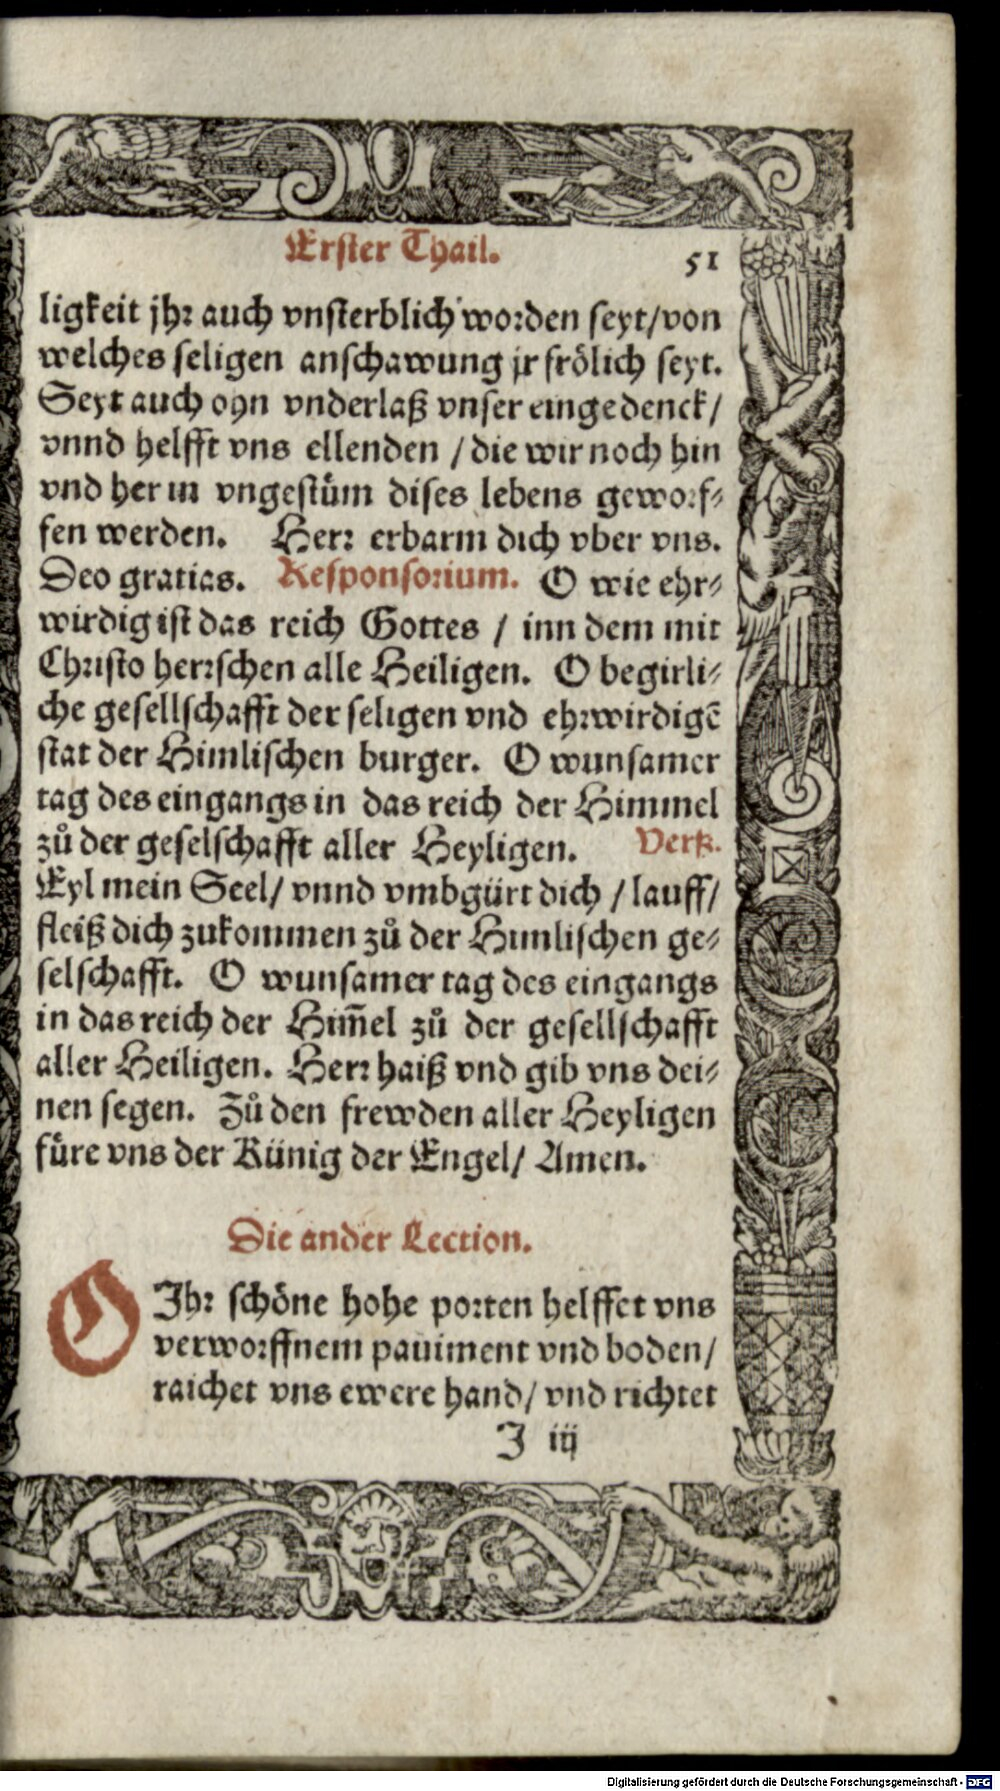 Erster Thail. 51
ligkeit jhr auch vnsterblich worden seyt/von
welches seligen anschawung jr frölich seyt.
Seyt auch ohn vnderlaß vnser eingedenck/
vnnd helfft vns ellenden / die wir noch hin
vnd her in vngestüm dises lebens geworf-
fen werden. Herr erbarm dich vber vns.
Deo gratias. Responsorium. O wie ehr-
wirdig ist das reich Gottes / inn dem mit
Christo herrschen alle Heiligen. O begirli-
che gesellschafft der seligen vnd ehrwirdigē
stat der Himlischen burger. O wunsamer
tag des eingangs in das reich der Himmel
zů der geselschafft aller Heyligen. Verß.
Eyl mein Seel/ vnnd vmbgürt dich / lauff/
fleiß dich zukommen zů der Himlischen ge-
selschafft. O wunsamer tag des eingangs
in das reich der Him̄el zů der gesellschafft
aller Heiligen. Herr haiß vnd gib vns dei-
nen segen. Zů den frewden aller Heyligen
füre vns der Künig der Engel/ Amen.
Die ander Lection.
O Ihr schöne hohe porten helffet vns
verworffnem pauiment vnd boden/
raichet vns ewere hand/ vnd richtet
J iij
Digitalisierung gefördert durch die Deutsche Forschungsgemeinschaft - DFG